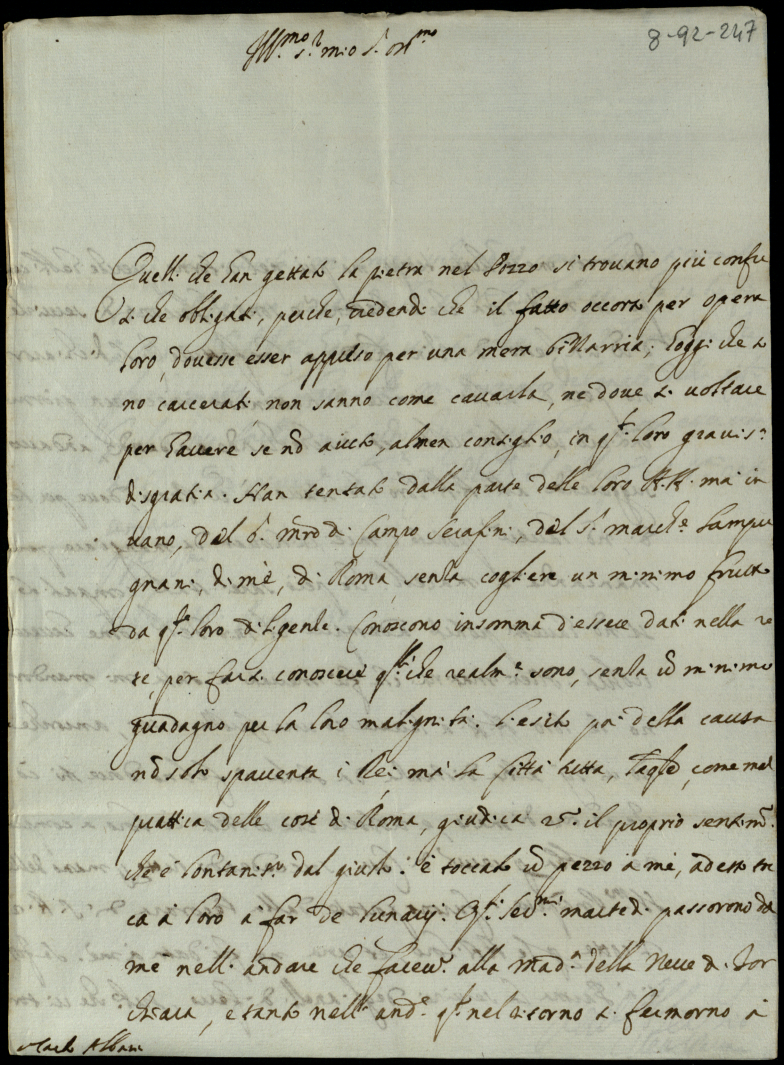 8-92-247
Ill.mo s.r mio s.r oss.mo
Quelli che han gettato la pietra nel Pozzo si trouano più confu
si che obligati, perche, credendo che il fatto occorso per opera
loro, douesse esser appreso per una mera bizzarria; hoggi che so
no carcerati non sanno come cauarla, ne doue si uoltare
per hauere se nõ aiuto, almen consiglio, in q.ta loro grauis.a
disgratia. Han tentato dalla parte delle loro AA. ma in
uano, del s.r mrõ di Campo Serafini, del s.r march.e Lampu
gnani, di mè, di Roma, senza cogliere un minimo frutto
da q.te loro diligenze. Conoscono insomma d'essere dati nella re
te, per farsi conoscere q.lli che realm.e sono, senza un minimo
guadagno per la loro malignità. L'esito poi della causa
nõ solo spauenta i Rei, mà la Città tutta, la qle, come mal
prattica delle cose di Roma, giudica 2.o il proprio sentim.o
che è lontanis.o dal giusto. è toccato un pezzo à mè, adesso toc
ca à loro à far de lunarij. Q.ti sed.mi martedi passorono da
mè nell'andare che faceu.o alla Mad.a della Neue di Tor
chiara, e tanto nell' and.e q.to nel ritorno si fermorno à
Carlo Albani